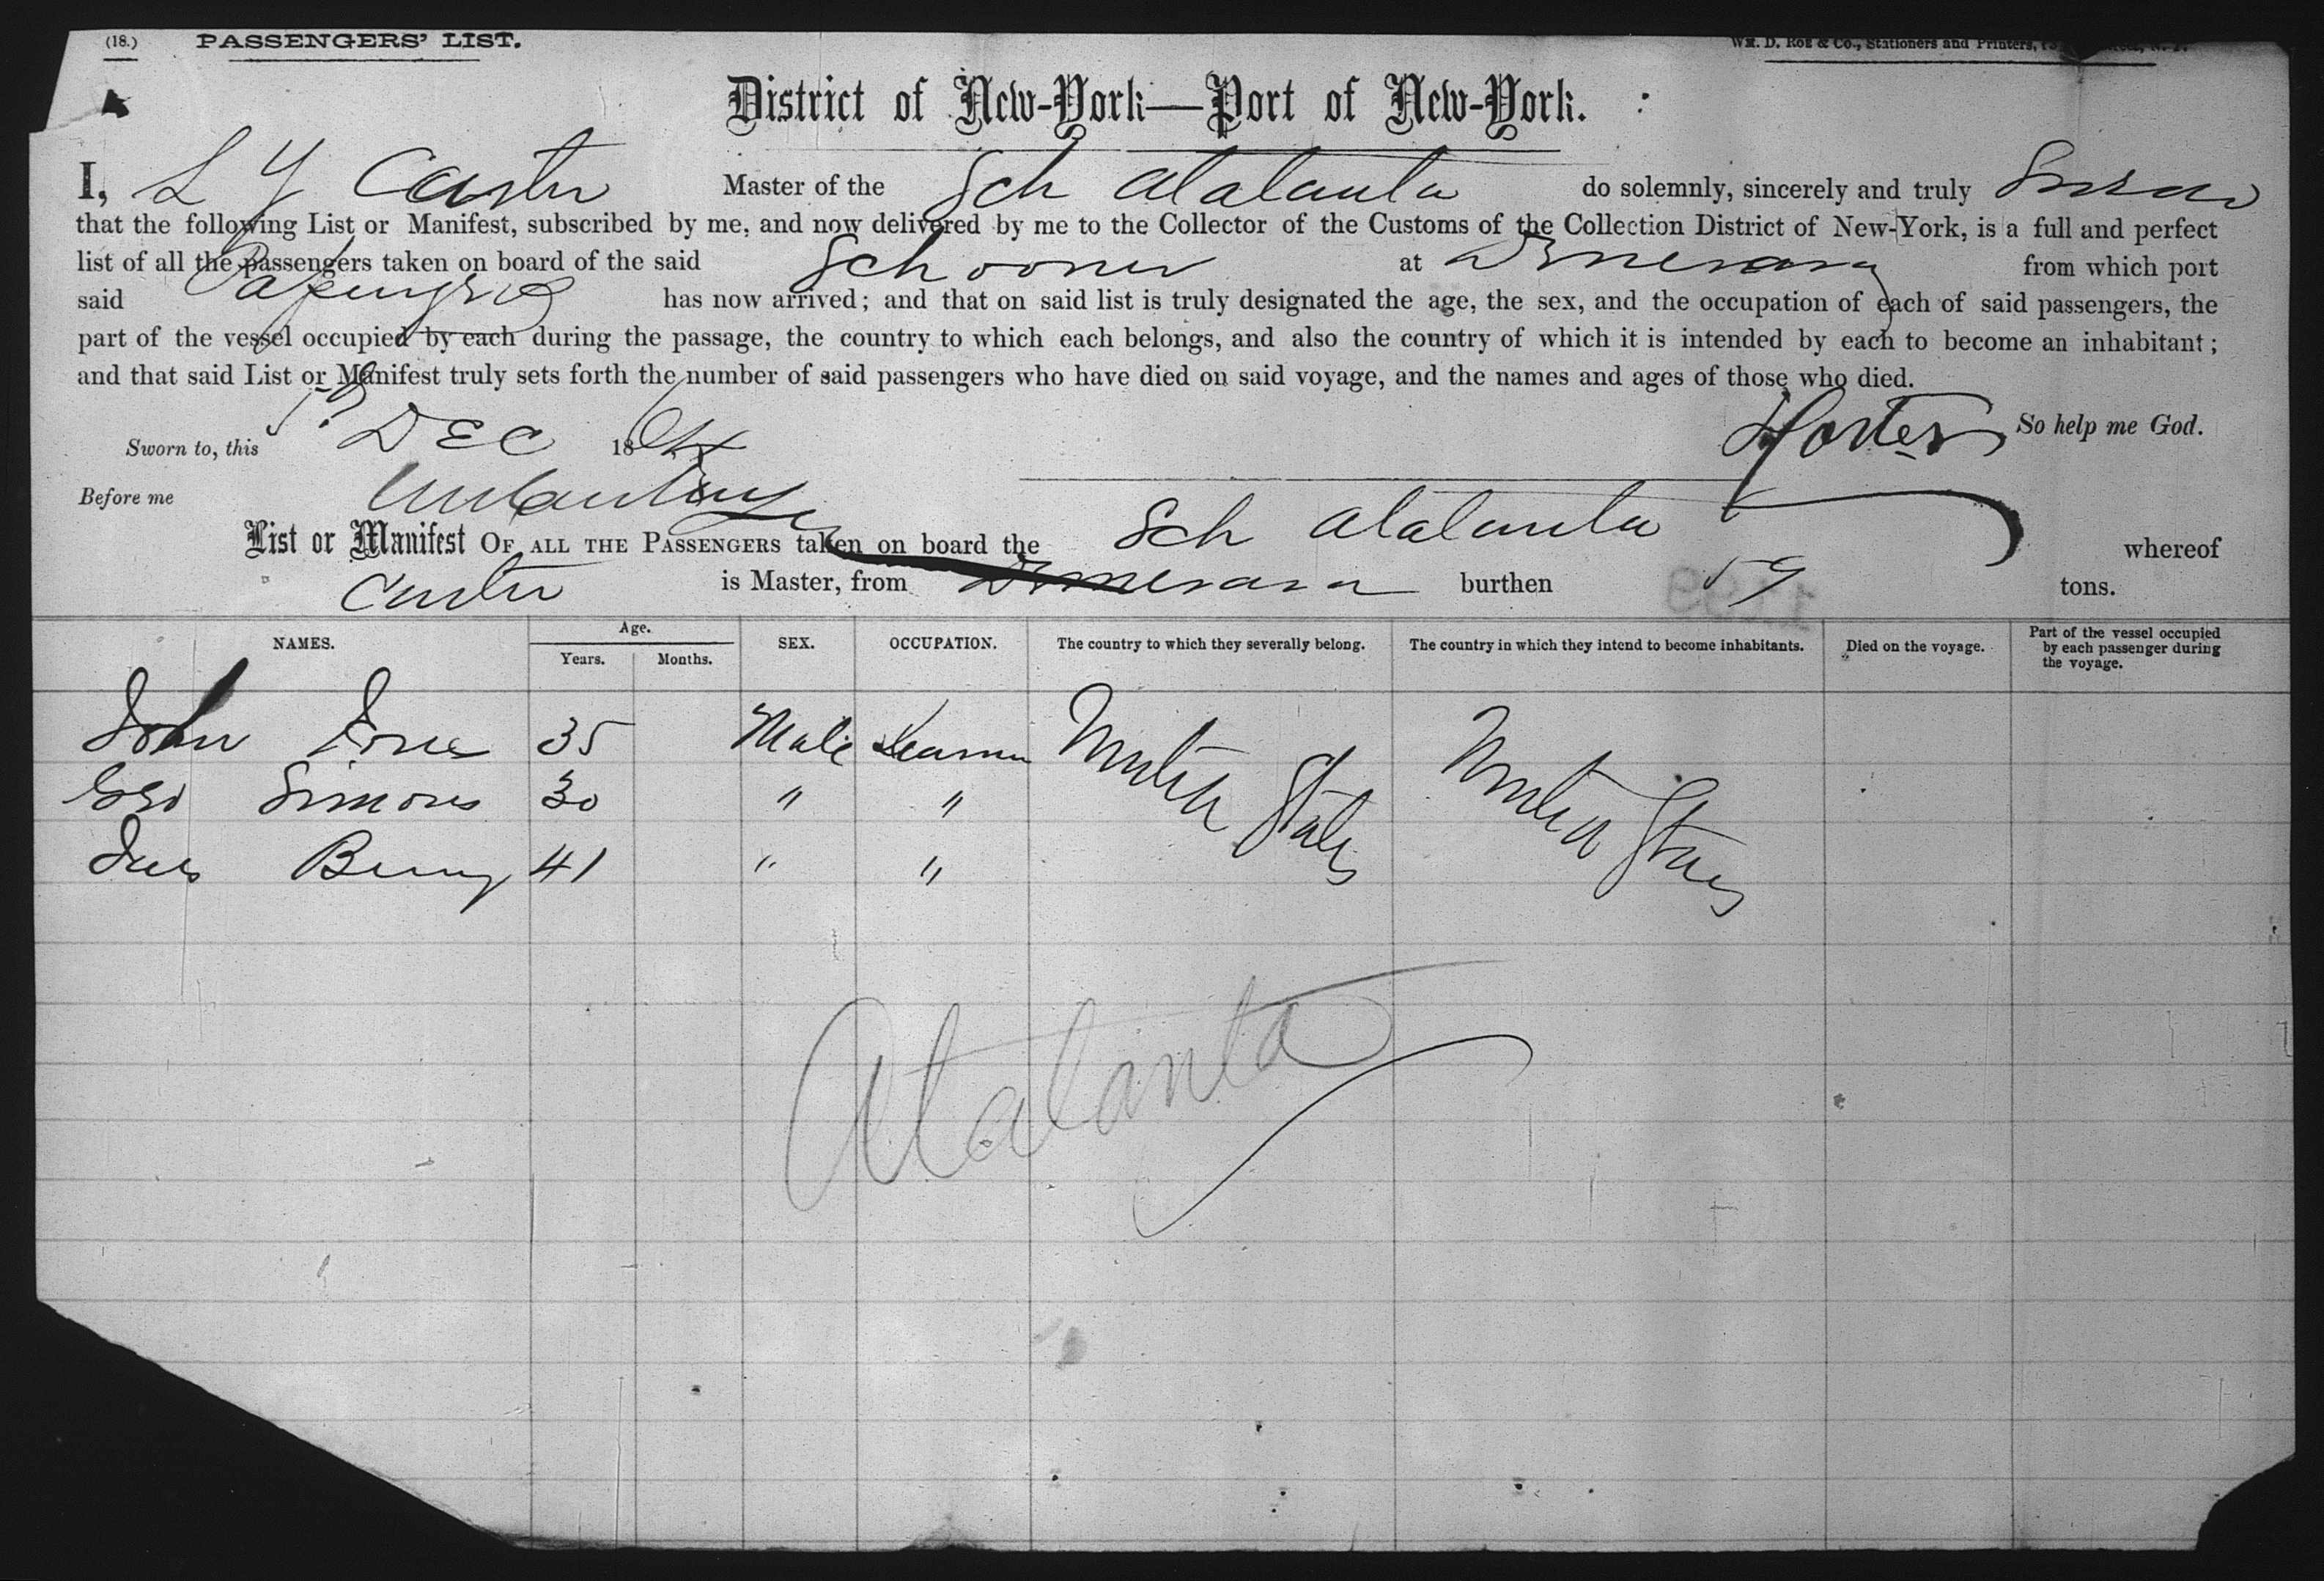 (18.) PASSENGERS' LIST.
Wm. D. Roe & Co., Stationers and Printers,
District of New-York—Port of New-York.
I, L Y Carter Master of the Sch Atalanta do solemnly, sincerely and truly Swear
that the following List or Manifest, subscribed by me, and now delivered by me to the Collector of the Customs of the Collection District of New-York, is a full and perfect
list of all the passengers taken on board of the said Schooner at Demerara from which port
said has now arrived; and that on said list is truly designated the age, the sex, and the occupation of each of said passengers, the
part of the vessel occupied by each during the passage, the country to which each belongs, and also the country of which it is intended by each to become an inhabitant;
and that said List or Manifest truly sets forth the number of said passengers who have died on said voyage, and the names and ages of those who died.
So help me God.
Sworn to, this DEC 18
Before me
List or Manifest OF ALL THE PASSENGERS taken on board the Sch Atalanta whereof
Carter is Master, from Demerara burthen 59 tons.
NAMES. Age. Years. Months. SEX. OCCUPATION. The country to which they severally belong. The country in which they intend to become inhabitants. Died on the voyage. Part of the vessel occupied by each passenger during the voyage.
John 35 Male Seaman United States United States
Geo Simons 30 " "
Jas Berry 41 " "
Atalanta